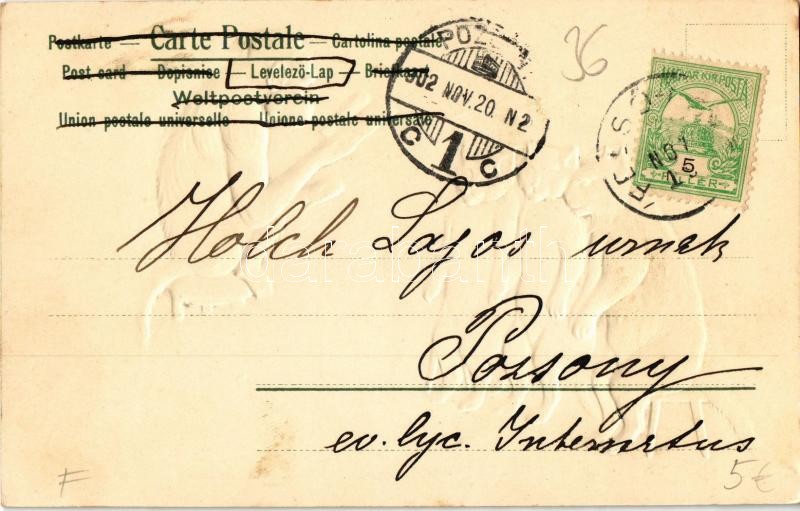 Postkarte — Carte Postale — Cartolina postale
Post card — Dopisnice — Levelező-Lap — Briefkaart
Weltpostverein
Union postale universelle Unione postale universale
POZ
902 NOV. 20. N2
C 1 C
36
MAGYAR KIR. POSTA
5
FILLER
NOV
Holch Lajos urnak
darabanth
Pozsony
ev. lyc. Internatus
F
5€